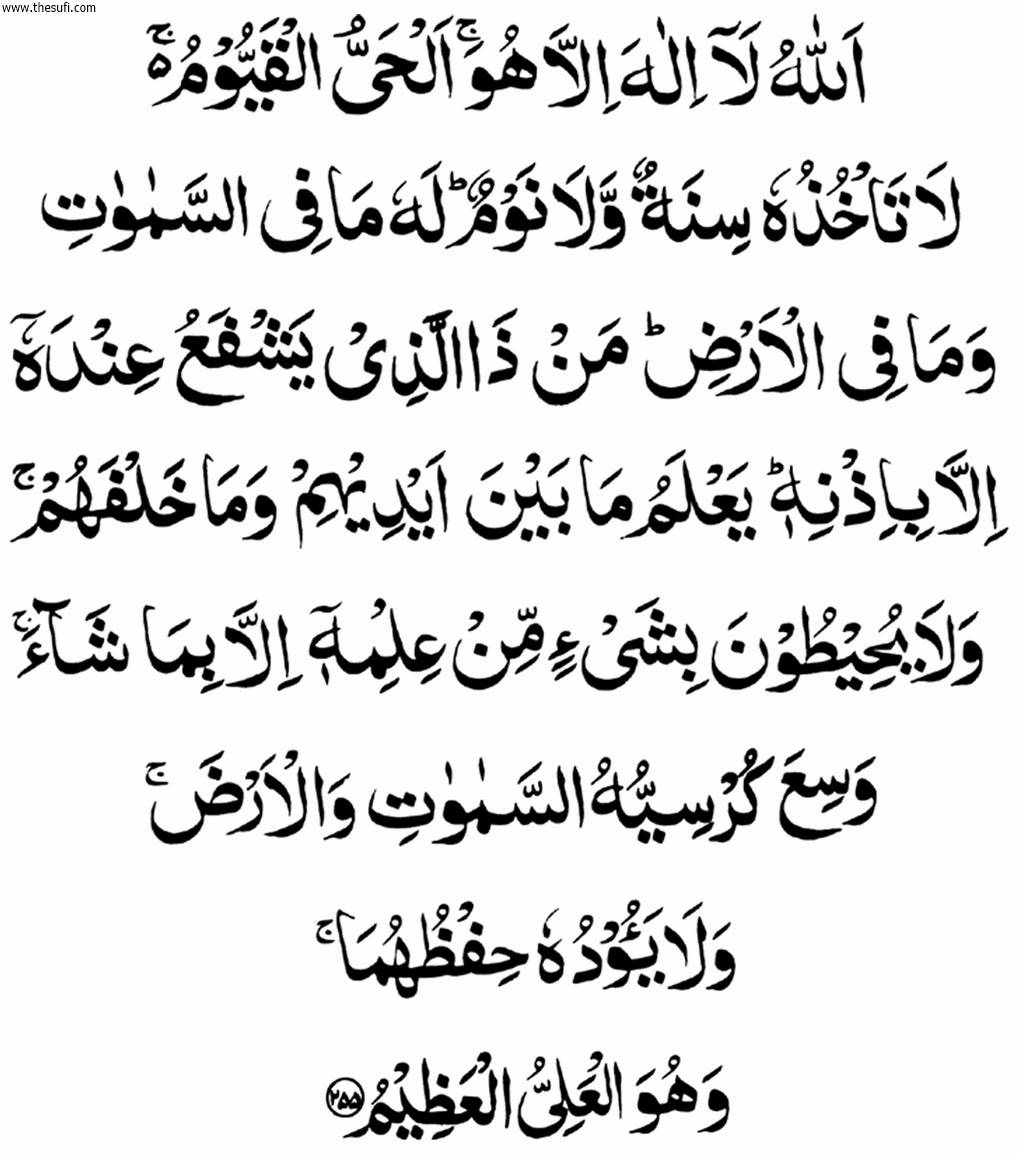 www.thesufi.com
اَللّٰهُ لَآ اِلٰهَ اِلَّا هُوَ ۚ اَلْحَیُّ الْقَیُّوْمُ ۚ۬
لَا تَاْخُذُهٗ سِنَةٌ وَّلَا نَوْمٌ ؕ لَهٗ مَا فِی السَّمٰوٰتِ
وَمَا فِی الْاَرْضِ ؕ مَنْ ذَا الَّذِیْ یَشْفَعُ عِنْدَهٗۤ
اِلَّا بِاِذْنِهٖ ؕ یَعْلَمُ مَا بَیْنَ اَیْدِیْهِمْ وَمَا خَلْفَهُمْ ۚ
وَلَا یُحِیْطُوْنَ بِشَیْءٍ مِّنْ عِلْمِهٖۤ اِلَّا بِمَا شَآءَ ۚ
وَسِعَ كُرْسِیُّهُ السَّمٰوٰتِ وَالْاَرْضَ ۚ
وَلَا یَـُٔوْدُهٗ حِفْظُهُمَا ۚ
وَهُوَ الْعَلِیُّ الْعَظِیْمُ ﴿۲۵۵﴾